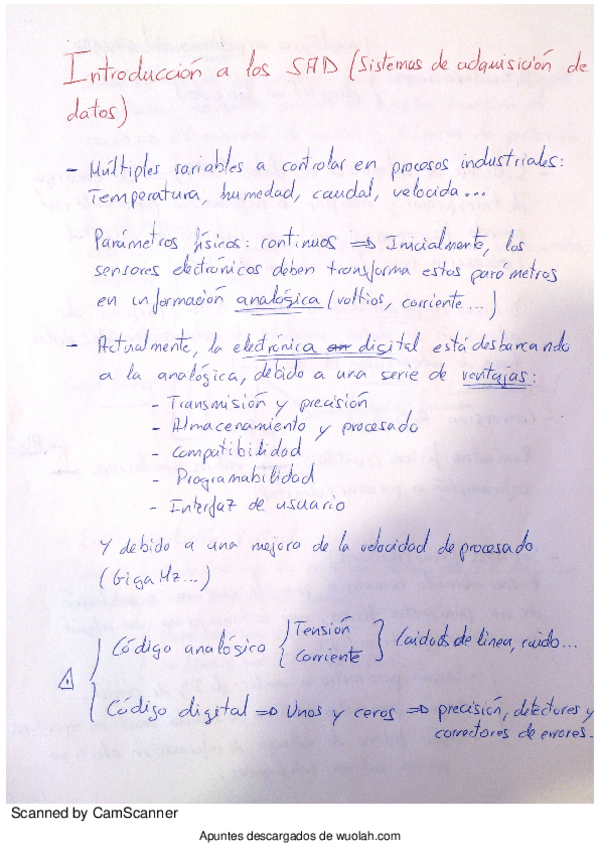 Introducción a los SAD (Sistemas de adquisición de
datos)
- Múltiples variables a controlar en procesos industriales:
Temperatura, humedad, caudal, velocida...
Parámetros físicos: continuos => Inicialmente, los
sensores electrónicos deben transforma estos parámetros
en información analógica (voltios, corriente...)
- Actualmente, la electrónica digital está desbancando
a la analógica, debido a una serie de ventajas:
- Transmisión y precisión
- Almacenamiento y procesado
- Compatibilidad
- Programabilidad
- Interfaz de usuario
Y debido a una mejora de la velocidad de procesado
(GigaHz...)
Código analógico { Tensión
Corriente } Caidas de linea, ruido...
Código digital => Unos y ceros => precisión, detectores y
correctores de errores.
Scanned by CamScanner
Apuntes descargados de wuolah.com